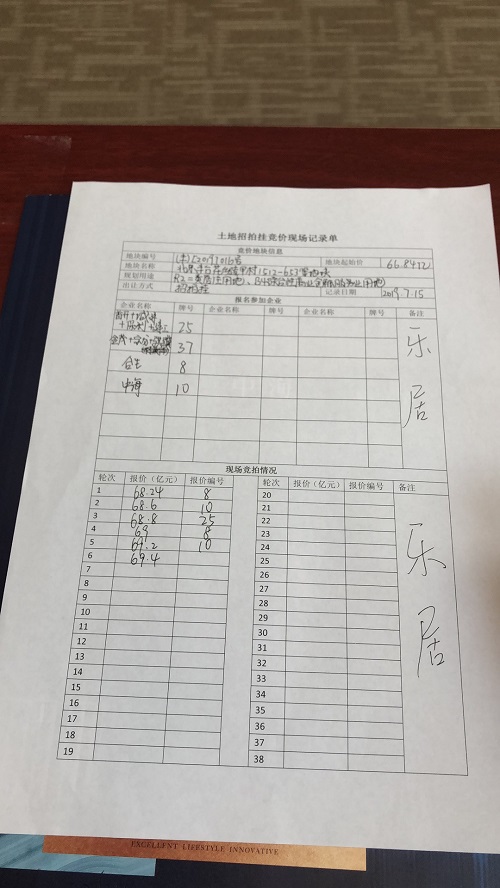 土地招拍挂竞价现场记录单
竞价地块信息
地块编号 地块起始价 66.84亿
地块名称 1512-653等地块
规划用途 R2二类居住用地、
出让方式 招拍挂 记录日期 2019.7.15
报名参加企业
企业名称 牌号 企业名称 牌号 企业名称 牌号 备注
25
37
合生 8
中海 10
乐居
现场竞拍情况
轮次 报价（亿元） 报价编号 轮次 报价（亿元） 报价编号 备注
1 68.24 8 20
2 68.6 10 21
3 68.8 25 22
4 69 8 23
5 69.2 10 24
6 69.4 25
7 26
8 27
9 28
10 29
11 30
12 31
13 32
14 33
15 34
16 35
17 36
18 37
19 38
乐居
EXCELLENT LIFESTYLE INNOVATIVE